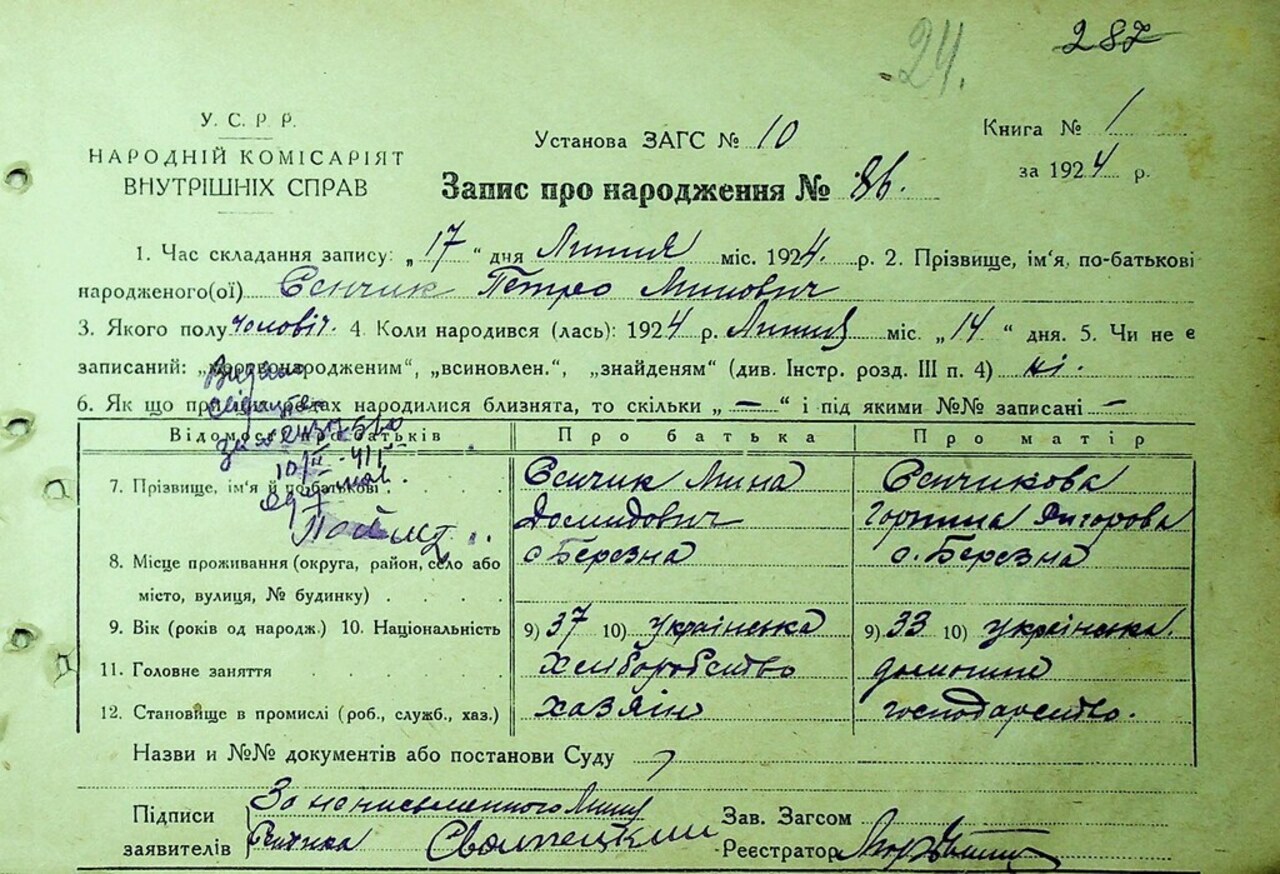 24.
287
У. С. Р. Р.
НАРОДНІЙ КОМІСАРІЯТ
ВНУТРІШНІХ СПРАВ
Установа ЗАГС № 10
Книга № 1
за 1924 р.
Запис про народження № 86.
1. Час складання запису: „17“ дня Липня міс. 1924. р. 2. Прізвище, ім'я, по-батькові
народженого(ої) Єенчик Петро Минович
3. Якого полу чоловіч. 4. Коли народився (лась): 1924 р. Липня міс. „14“ дня. 5. Чи не є
записаний: „мертвонародженим“, „всиновлен.“, „знайденям“ (див. Інстр. розд. III п. 4) ні.
6. Як що при цих родах народилися близнята, то скільки „—“ і під якими №№ записані —
Видано
свідацтво
Відомості про батьків Про батька Про матір
7. Прізвище, ім'я й по-батькові Єенчик Мина Єенчикова
Домидович Горпина Григорова
8. Місце проживання (округа, район, село або с Березна с. Березна
місто, вулиця, № будинку)
9. Вік (років од народж.) 10. Національність 9) 37 10) українська 9) 33 10) українська.
11. Головне заняття хліборобство домашнє
12. Становище в промислі (роб., служб., хаз.) хазяїн господарство.
Назви и №№ документів або постанови Суду
Підписи За неписьменного Мину
заявителів Єенчика
Зав. Загсом
Реєстратор